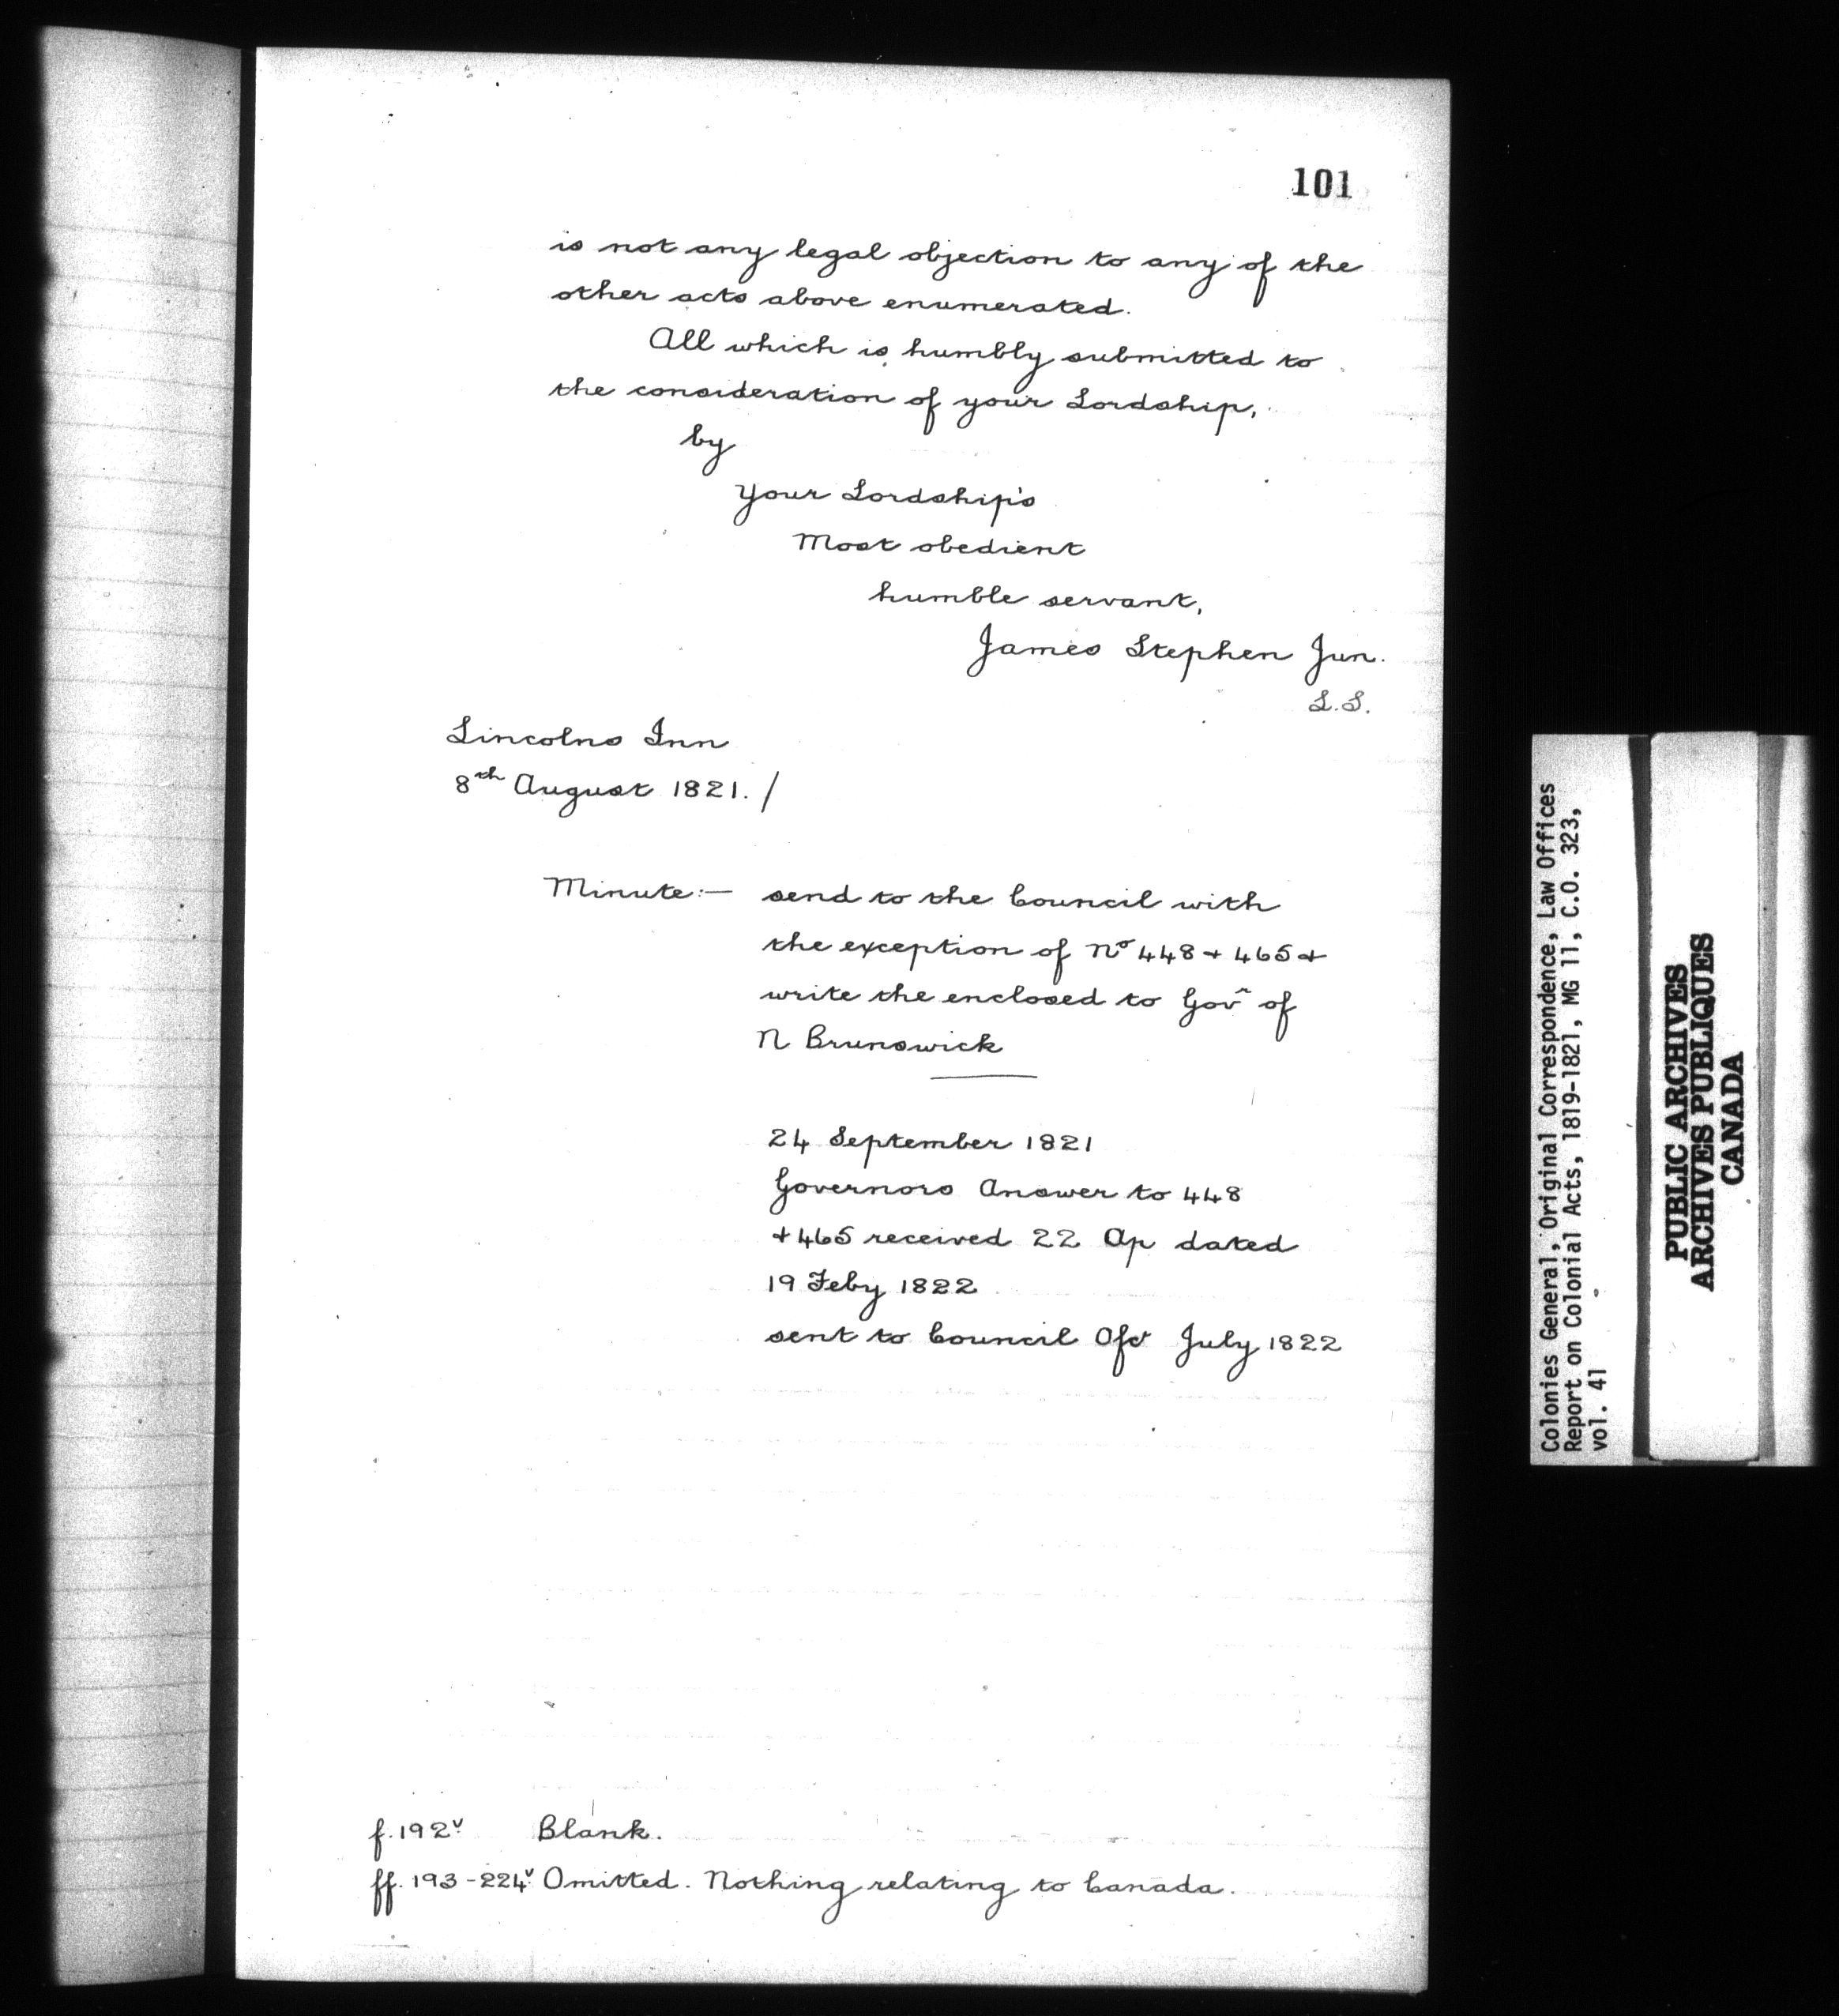 101
is not any legal objection to any of the
other acts above enumerated.
All which is humbly submitted to
the consideration of your Lordship,
by
Your Lordship's
Most obedient
humble servant,
James Stephen Jun.
L.S.
Lincolns Inn
8th August 1821. /
Minute:— send to the Council with
the exception of No 448 + 465 +
write the enclosed to Govr of
N Brunswick
24 September 1821
Governors Answer to 448
+ 465 received 22 Ap dated
19 Feby 1822
sent to Council July 1822
f.192v Blank.
ff. 193-224v Omitted. Nothing relating to Canada.
Colonies General, Original Correspondence, Law Offices
Report on Colonial Acts, 1819-1821, MG 11, C.O. 323,
vol. 41
PUBLIC ARCHIVES
ARCHIVES PUBLIQUES
CANADA